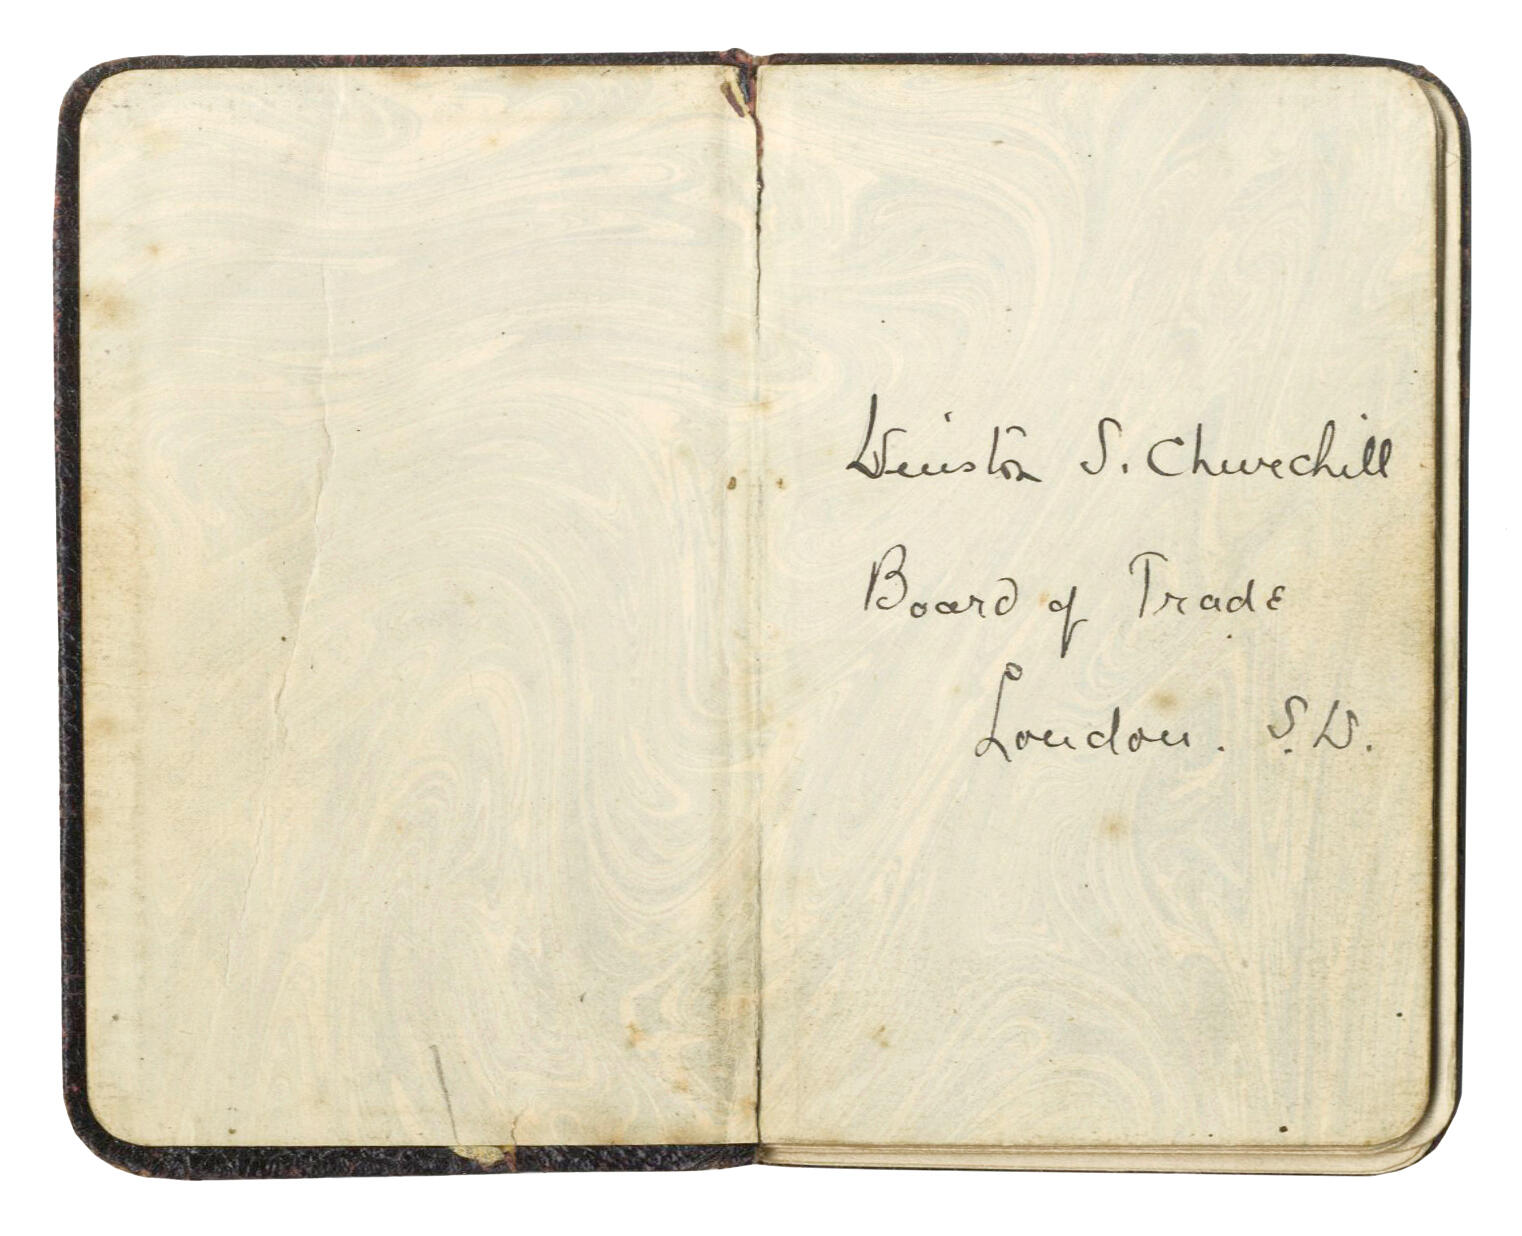 Winston S. Churchill
Board of Trade
London. S.W.